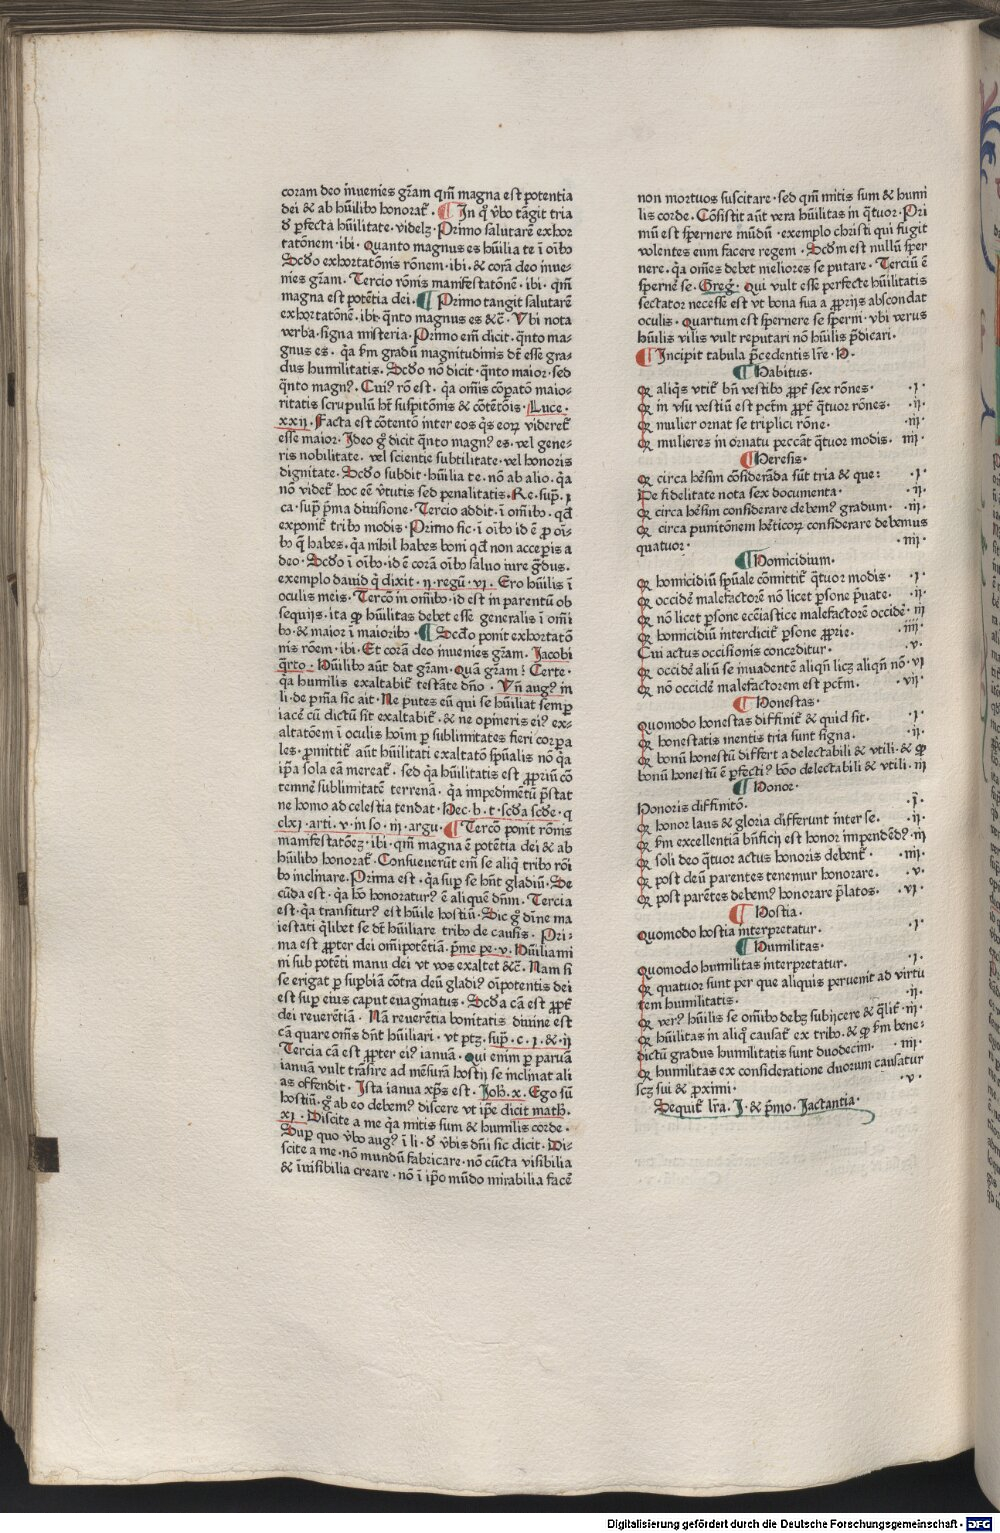 coram deo inuenies grãm qm̃ magna est potentia
dei & ab hũilibꝰ honorat᷑ · ¶ In qͥ v̾bo tãgit tria
d̾ ꝑfecta hũilitate · videlꝫ · Primo salutarẽ exhor
tatõnem · ibi · Quanto magnus es hũilia te ĩ oĩbꝰ
Scd̾o exhortatõnis rõnem · ibi · & corã deo inue⸗
nies grãm · Tercio rõnis manifestatõnẽ · ibi · qm̃
magna est potẽtia dei · ¶ Primo tangit salutarẽ
exhortatõnẽ · ibi · qñto magnus es &c̃ · Vbi nota
verba · signa misteria · Primo em̃ dicit · qñto ma⸗
gnus es · qͣ ẜm gradũ magnitudinis dꝫ esse gra⸗
dus humilitatis · Scd̾o nõ dicit · qñto maior · sed
qñto magnꝰ · Cuiꝰ rõ est · qͣ om̃is cõparatõ maio⸗
ritatis scrupulũ hꝫ suspitõnis & cõtẽtõis · Luce ·
xxij · Facta est cõtentõ inter eos qͥs eoꝝ videret᷑
esse maior · Ideo gͦ dicit qñto magnꝰ es · vel gene⸗
ris nobilitate · vel scientie subtilitate · vel honoris
dignitate · Scd̾o subdit · hũilia te · nõ ab alio · qͣ
nõ videt᷑ hoc eẽ v̾tutis sed penalitatis · Re · supͣ · j
ca · supͣ pͥma diuisione · Tercio addit · ĩ om̃ibꝰ · qd̾
exponit᷑ tribꝰ modis · Primo sic · ĩ oĩbꝰ id ẽ ꝓ oĩ⸗
bꝰ q̃ habes · qͣ nihil habes boni qd̾ non acceperis a
deo · Scd̾o ĩ oĩbꝰ · id ẽ corã oĩbꝰ saluo iure gͣdus ·
exemplo dauid qͥ dixit · ij · regũ · vi · Ero hũilis ĩ
oculis meis · Tercõ in om̃ibꝰ · id est in parentũ ob
sequijs · ita ꝙ hũilitas debet esse generalis ĩ om̃i
bꝰ · & maior ĩ maioribꝰ · ¶ Scd̾o ponit exhortatõ
nis rõem · ibi · Et corã deo inuenies grãm · Jacobi
qͣrto · Hũilibꝰ aũt dat grãm · Quã grãm ⁝ Certe ·
qͣ humilis exaltabit᷑ testãte dño · Vñ augꝰ in
li · de pñia sic ait · Ne putes eũ qui se hũiliat semꝑ
iacẽ cũ dictũ sit exaltabit᷑ · & ne opineris eiꝰ ex⸗
altatõem ĩ oculis hoĩm ꝑ sublimitates fieri corꝑa
les · ꝓmittit᷑ aũt hũilitati exaltatõ spũalis nõ qͣ
ip̃a sola eã mereat᷑ · sed qͣ hũilitatis est ꝓpriũ cõ
temnẽ sublimitatẽ terrenã · qͣ impedimẽtũ p̃stat
ne homo ad celestia tendat · Hec · b · t · scd̾a scd̾e · q
clxj · arti · v · in so · iij · argu · ¶ Tercõ ponit rõnis
manifestatõeꝫ · ibi · qm̃ magna ẽ potẽtia dei & ab
hũilibꝰ honorat᷑ · Consueuerũt em̃ se aliqͥ tribꝰ rõi
bꝰ inclinare · Prima est · qͣ supͣ se hñt gladiũ · Se
cũda est · qͣ hõ honoraturꝰ ẽ aliquẽ dñm · Tercia
est · qͣ transiturꝰ est hũile hostiũ · Sic gͦ diuine ma
iestati qͥlibet se dꝫ hũiliare tribꝰ de causis · Pri⸗
ma est ꝓpter dei om̃ipotẽtiã · pͥme pe · v · Hũiliami
ni sub potẽti manu dei vt vos exaltet &c̃ · Nam si
se erigat ꝑ supͣbiã cõtra deũ gladiꝰ oĩpotentis dei
est supͣ eius caput euaginatus · Scd̾a cã est ꝓpt᷑
dei reuerẽtiã · Nã reuerẽtia bonitatis diuine est
cã quare om̃s dñt hũiliari · vt ptꝫ · supͣ · c · j · & ij
Tercia cã est ꝓpter eiꝰ ianuã · Qui enim ꝑ paruã
ianuam vult trãsire ad mẽsurã hostij se inclinat ali
as offendit · Ista ianua xp̃s est · Joh̃ · x · Ego sũ
hostiũ · gͦ ab eo debemꝰ discere vt ip̃e dicit math̃ ·
xj · Discite a me qͣ mitis sum & humilis corde ·
Supͣ quo v̾bo augꝰ ĩ li · d̾ v̾bis dñi sic dicit · Di⸗
scite a me · nõ mundũ fabricare · nõ cũcta visibilia
& ĩuisibilia creare · nõ ĩ ip̃o mũdo mirabilia facẽ
non mortuos suscitare · sed qm̃ mitis sum & humi
lis corde · Cõsistit aũt vera hũilitas in qͣtuor · Pri
mũ est spernere mũdũ · exemplo christi qui fugit
volentes eum facere regem · Scd̾m est nullũ sper
nere · qͣ om̃es debet meliores se putare · Terciũ ẽ
spernẽ se · Greg̾ · Qui vult esse perfecte hũilitatis
sectator necesse est vt bona sua a ꝓprijs abscondat
oculis · Quartum est spernere se sperni · vbi verus
hũilis vilis vult reputari nõ hũilis p̃dicari ·
¶ Incipit tabula p̃cedentis lr̃e · H ·
¶ Habitus ·
Q aliqͥs vtit᷑ bñ vestibꝰ ꝓpt᷑ sex rõnes · · j ·
Q in vsu vestiũ est pctm̃ ꝓpt᷑ qͣtuor rõnes · · ij ·
Q mulier ornat se triplici rõne · · iij ·
Q mulieres in ornatu peccãt qͣtuor modis · iiij ·
¶ Heresis ·
Q circa hẽsim cõsiderãda sũt tria & que ⁝ · j ·
De fidelitate nota sex documenta · · ij ·
Q circa hẽsim considerare debemꝰ gradum · · iij ·
Q circa punitõnem hẽticoꝝ considerare debemus
quatuor · · iiij ·
¶ Homicidium ·
Q homicidiũ spũale cõmittit᷑ qͣtuor modis · · j ·
Q occidẽ malefactorẽ nõ licet ꝑsone pͥuate · · ij ·
Q nõ licet ꝑsone ecc̃iastice malefactorẽ occidẽ · iij
Q homicidiũ interdicit᷑ ꝑsone ꝓprie · · iiij ·
Cui actus occisionis conceditur · · v ·
Q occidẽ aliũ se inuadentẽ aliqñ licꝫ aliqñ nõ · vj
Q nõ occidẽ malefactorem est pctm̃ · · vij ·
¶ Honestas ·
Quomodo honestas diffinit᷑ & quid sit · · j ·
Q honestatis mentis tria sunt signa · · ij ·
Q bonũ honestũ differt a delectabili & vtili · & ꝙ
bonũ honestũ ẽ ꝑfectiꝰ bõo delectabili & vtili · iij
¶ Honor ·
Honoris diffinitõ · · j ·
Q honor laus & gloria differunt inter se · · ij ·
Q ẜm excellentiã bñficij est honor impendẽdꝰ · iij
Q soli deo qͣtuor actus honoris debent᷑ · · iiij ·
Q post deũ parentes tenemur honorare · · v ·
Q post parẽtes debemꝰ honorare p̃latos · · vj ·
¶ Hostia ·
Quomodo hostia interpretatur · · j ·
¶ Humilitas ·
Quomodo humilitas interpretatur · · j ·
Q quatuor sunt per que aliquis peruenit ad virtu
tem humilitatis · · ij ·
Q verꝰ hũilis se om̃ibꝰ debꝫ subijcere & qͣlit᷑ · iij ·
Q hũilitas in aliqͦ causat᷑ ex tribꝰ · & ꝙ ẜm bene⸗
dictũ gradus humilitatis sunt duodecim · · iiij ·
Q humilitas ex consideratione duorum causatur
scꝫ sui & ꝓximi · · v ·
Sequit᷑ lr̃a · J · & pͥmo · Jactantia ·
Digitalisierung gefördert durch die Deutsche Forschungsgemeinschaft - DFG